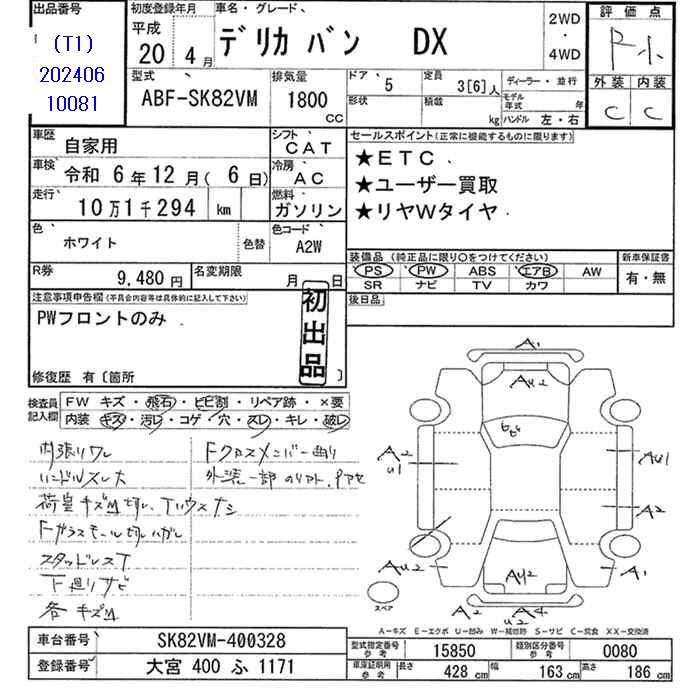 出品番号
(T1)
202406
10081
初度登録年月
平成
20 4月
車名・グレード
デリカ バン DX
2WD
・
4WD
評価点
外装 内装
C C
型式
ABF-SK82VM
排気量
1800
CC
ドア 5
形状
定員 3[6]人
積載 kg
ディーラー・並行
モデル年式 年
ハンドル 左・右
車歴 自家用
シフト CAT
車検 令和 6年12月( 6日)
冷房 AC
走行 10万1千294 km
燃料 ガソリン
色 ホワイト
色替
色コード A2W
R券 9,480円
名変期限 月 日
セールスポイント(正常に機能するものに限ります)
★ETC
★ユーザー買取
★リヤWタイヤ
装備品(純正品に限り○をつけてください)
PS PW ABS エアB AW
SR ナビ TV カワ
新車保証書
有・無
後日品
注意事項申告欄(不具合内容等は具体的に記入して下さい)
PWフロントのみ
初出品
修復歴 有〔箇所 〕
検査員記入欄
FW キズ・飛石・ヒビ割・リペア跡・×要
内装 キズ・汚レ・コゲ・穴・スレ・キレ・破レ
内張りワレ
ハンドルスレ大
スタッドレスT
下廻りサビ
各キズM
Fクロスメンバー曲り
A1
AU2
A2
U1
AU1
A2
AU2
A1
AU2
A2
U2
A4
スペア
A−キズ E−エクボ U−凹み W−補修跡 S−サビ C−腐食 XX−交換済
車台番号 SK82VM-400328
登録番号 大宮 400 ふ 1171
型式指定番号 参考 15850
類別区分番号 参考 0080
車庫証明用 参考 長さ 428 cm 幅 163 cm 高さ 186 cm